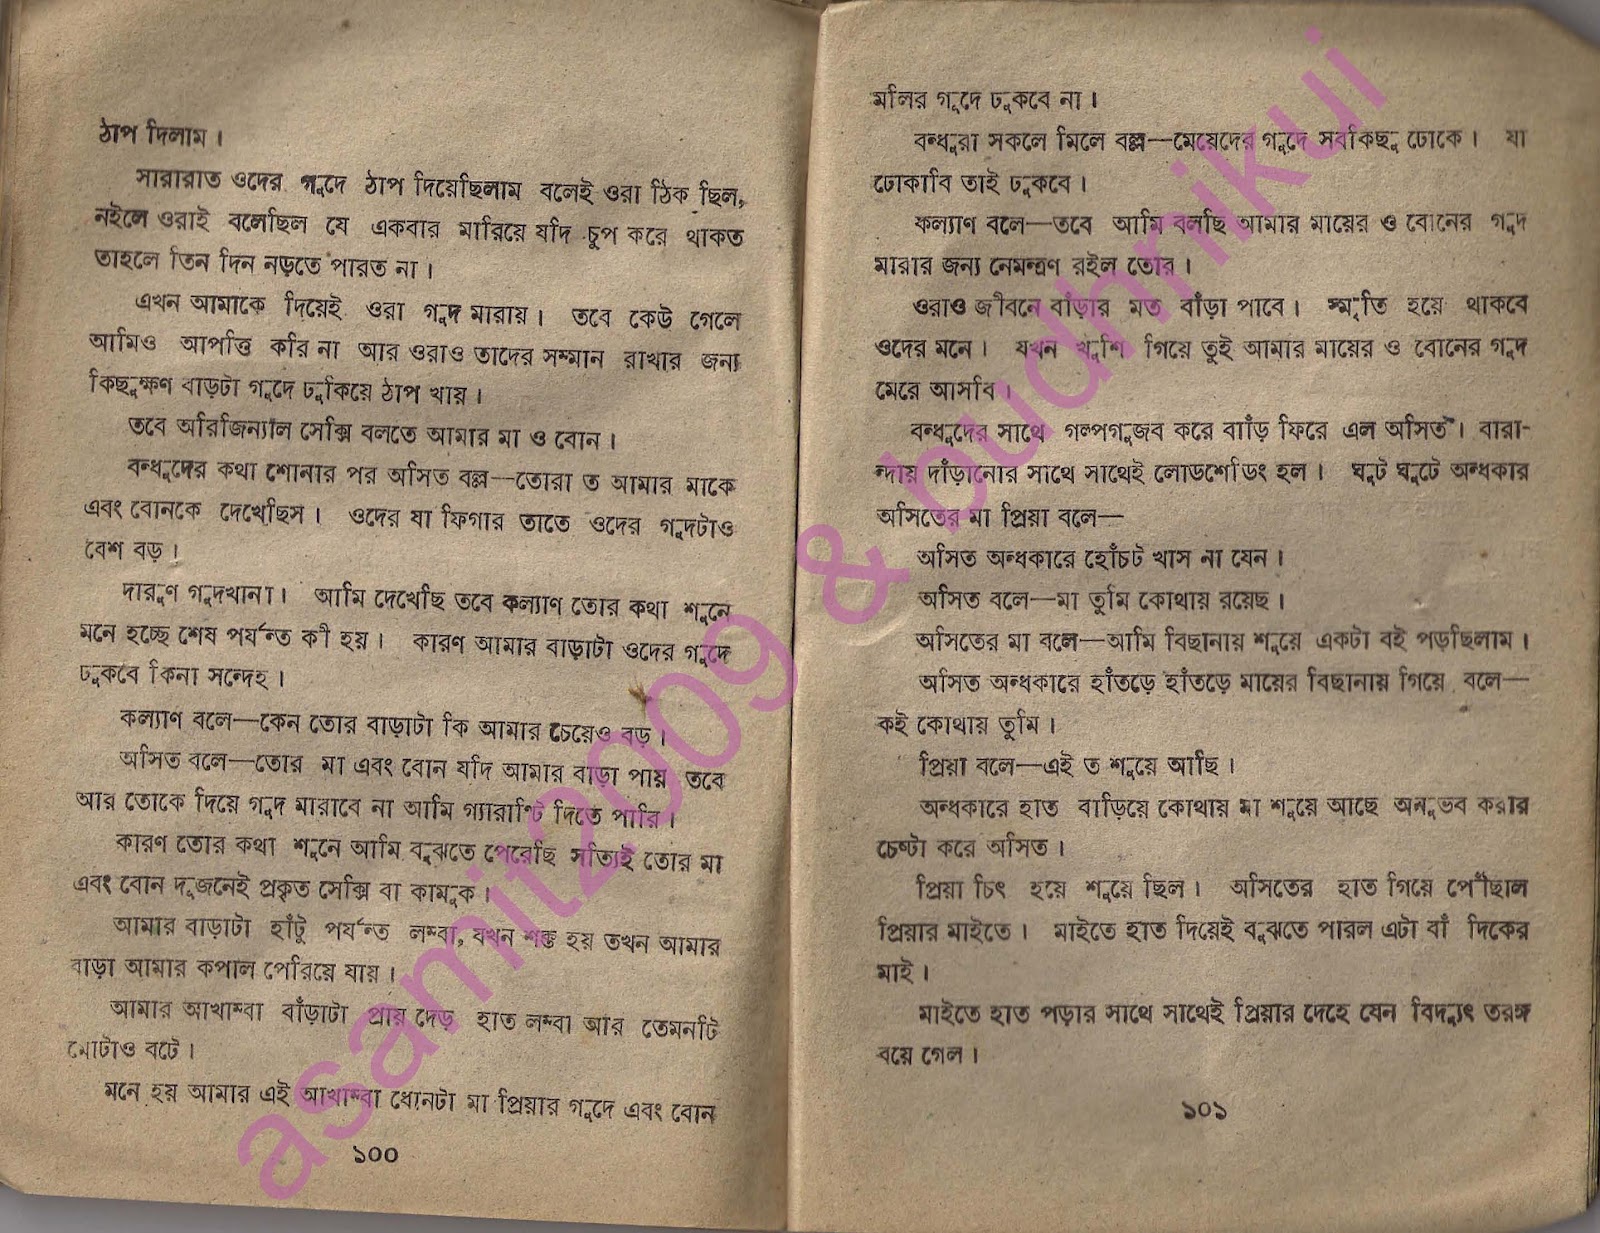 ঠাপ দিলাম।
সারারাত ওদের গুদে ঠাপ দিয়েছিলাম বলেই ওরা ঠিক ছিল,
নইলে ওরাই বলেছিল যে একবার মারিয়ে যদি চুপ করে থাকত
তাহলে তিন দিন নড়তে পারত না।
এখন আমাকে দিয়েই ওরা গুদ মারায়। তবে কেউ গেলে
আমিও আপত্তি করি না আর ওরাও তাদের সম্মান রাখার জন্য
কিছুক্ষণ বাড়টা গুদে ঢুকিয়ে ঠাপ খায়।
তবে অরিজিন্যাল সেক্সি বলতে আমার মা ও বোন।
বন্ধুদের কথা শোনার পর অসিত বল্ল—তোরা ত আমার মাকে
এবং বোনকে দেখেছিস। ওদের যা ফিগার তাতে ওদের গুদটাও
বেশ বড়।
দারুণ গুদখানা। আমি দেখেছি তবে কল্যাণ তোর কথা শুনে
মনে হচ্ছে শেষ পর্যন্ত কী হয়। কারণ আমার বাড়াটা ওদের গুদে
ঢুকবে কিনা সন্দেহ।
কল্যাণ বলে—কেন তোর বাড়াটা কি আমার চেয়েও বড়।
অসিত বলে—তোর মা এবং বোন যদি আমার বাড়া পায় তবে
আর তোকে দিয়ে গুদ মারাবে না আমি গ্যারান্টি দিতে পারি।
কারণ তোর কথা শুনে আমি বুঝতে পেরেছি সত্যিই তোর মা
এবং বোন দুজনেই প্রকৃত সেক্সি বা কামুক।
আমার বাড়াটা হাঁটু পর্যন্ত লম্বা, যখন শক্ত হয় তখন আমার
বাড়া আমার কপাল পেরিয়ে যায়।
আমার আখাম্বা বাঁড়াটা প্রায় দেড় হাত লম্বা আর তেমনটি
মোটাও বটে।
মনে হয় আমার এই আখাম্বা ধোনটা মা প্রিয়ার গুদে এবং বোন
১০০
মলির গুদে ঢুকবে না।
বন্ধুরা সকলে মিলে বল্ল—মেয়েদের গুদে সবকিছু ঢোকে। যা
ঢোকাবি তাই ঢুকবে।
কল্যাণ বলে—তবে আমি বলছি আমার মায়ের ও বোনের গুদ
মারার জন্য নেমন্ত্রণ রইল তোর।
ওরাও জীবনে বাঁড়ার মত বাঁড়া পাবে। স্মৃতি হয়ে থাকবে
ওদের মনে। যখন খুশি গিয়ে তুই আমার মায়ের ও বোনের গুদ
মেরে আসবি।
বন্ধুদের সাথে গল্পগুজব করে বাড়ি ফিরে এল অসিত। বারা-
ন্দায় দাঁড়ানোর সাথে সাথেই লোডশেডিং হল। ঘুট ঘুটে অন্ধকার
অসিতের মা প্রিয়া বলে—
অসিত অন্ধকারে হোঁচট খাস না যেন।
অসিত বলে—মা তুমি কোথায় রয়েছ।
অসিতের মা বলে—আমি বিছানায় শুয়ে একটা বই পড়ছিলাম।
অসিত অন্ধকারে হাঁতড়ে হাঁতড়ে মায়ের বিছানায় গিয়ে বলে—
কই কোথায় তুমি।
প্রিয়া বলে—এই ত শুয়ে আছি।
অন্ধকারে হাত বাড়িয়ে কোথায় মা শুয়ে আছে অনুভব করার
চেষ্টা করে অসিত।
প্রিয়া চিৎ হয়ে শুয়ে ছিল। অসিতের হাত গিয়ে পৌঁছাল
প্রিয়ার মাইতে। মাইতে হাত দিয়েই বুঝতে পারল এটা বাঁ দিকের
মাই।
মাইতে হাত পড়ার সাথে সাথেই প্রিয়ার দেহে যেন বিদ্যুৎ তরঙ্গ
বয়ে গেল।
১০১
asamit2009 & budhrikui